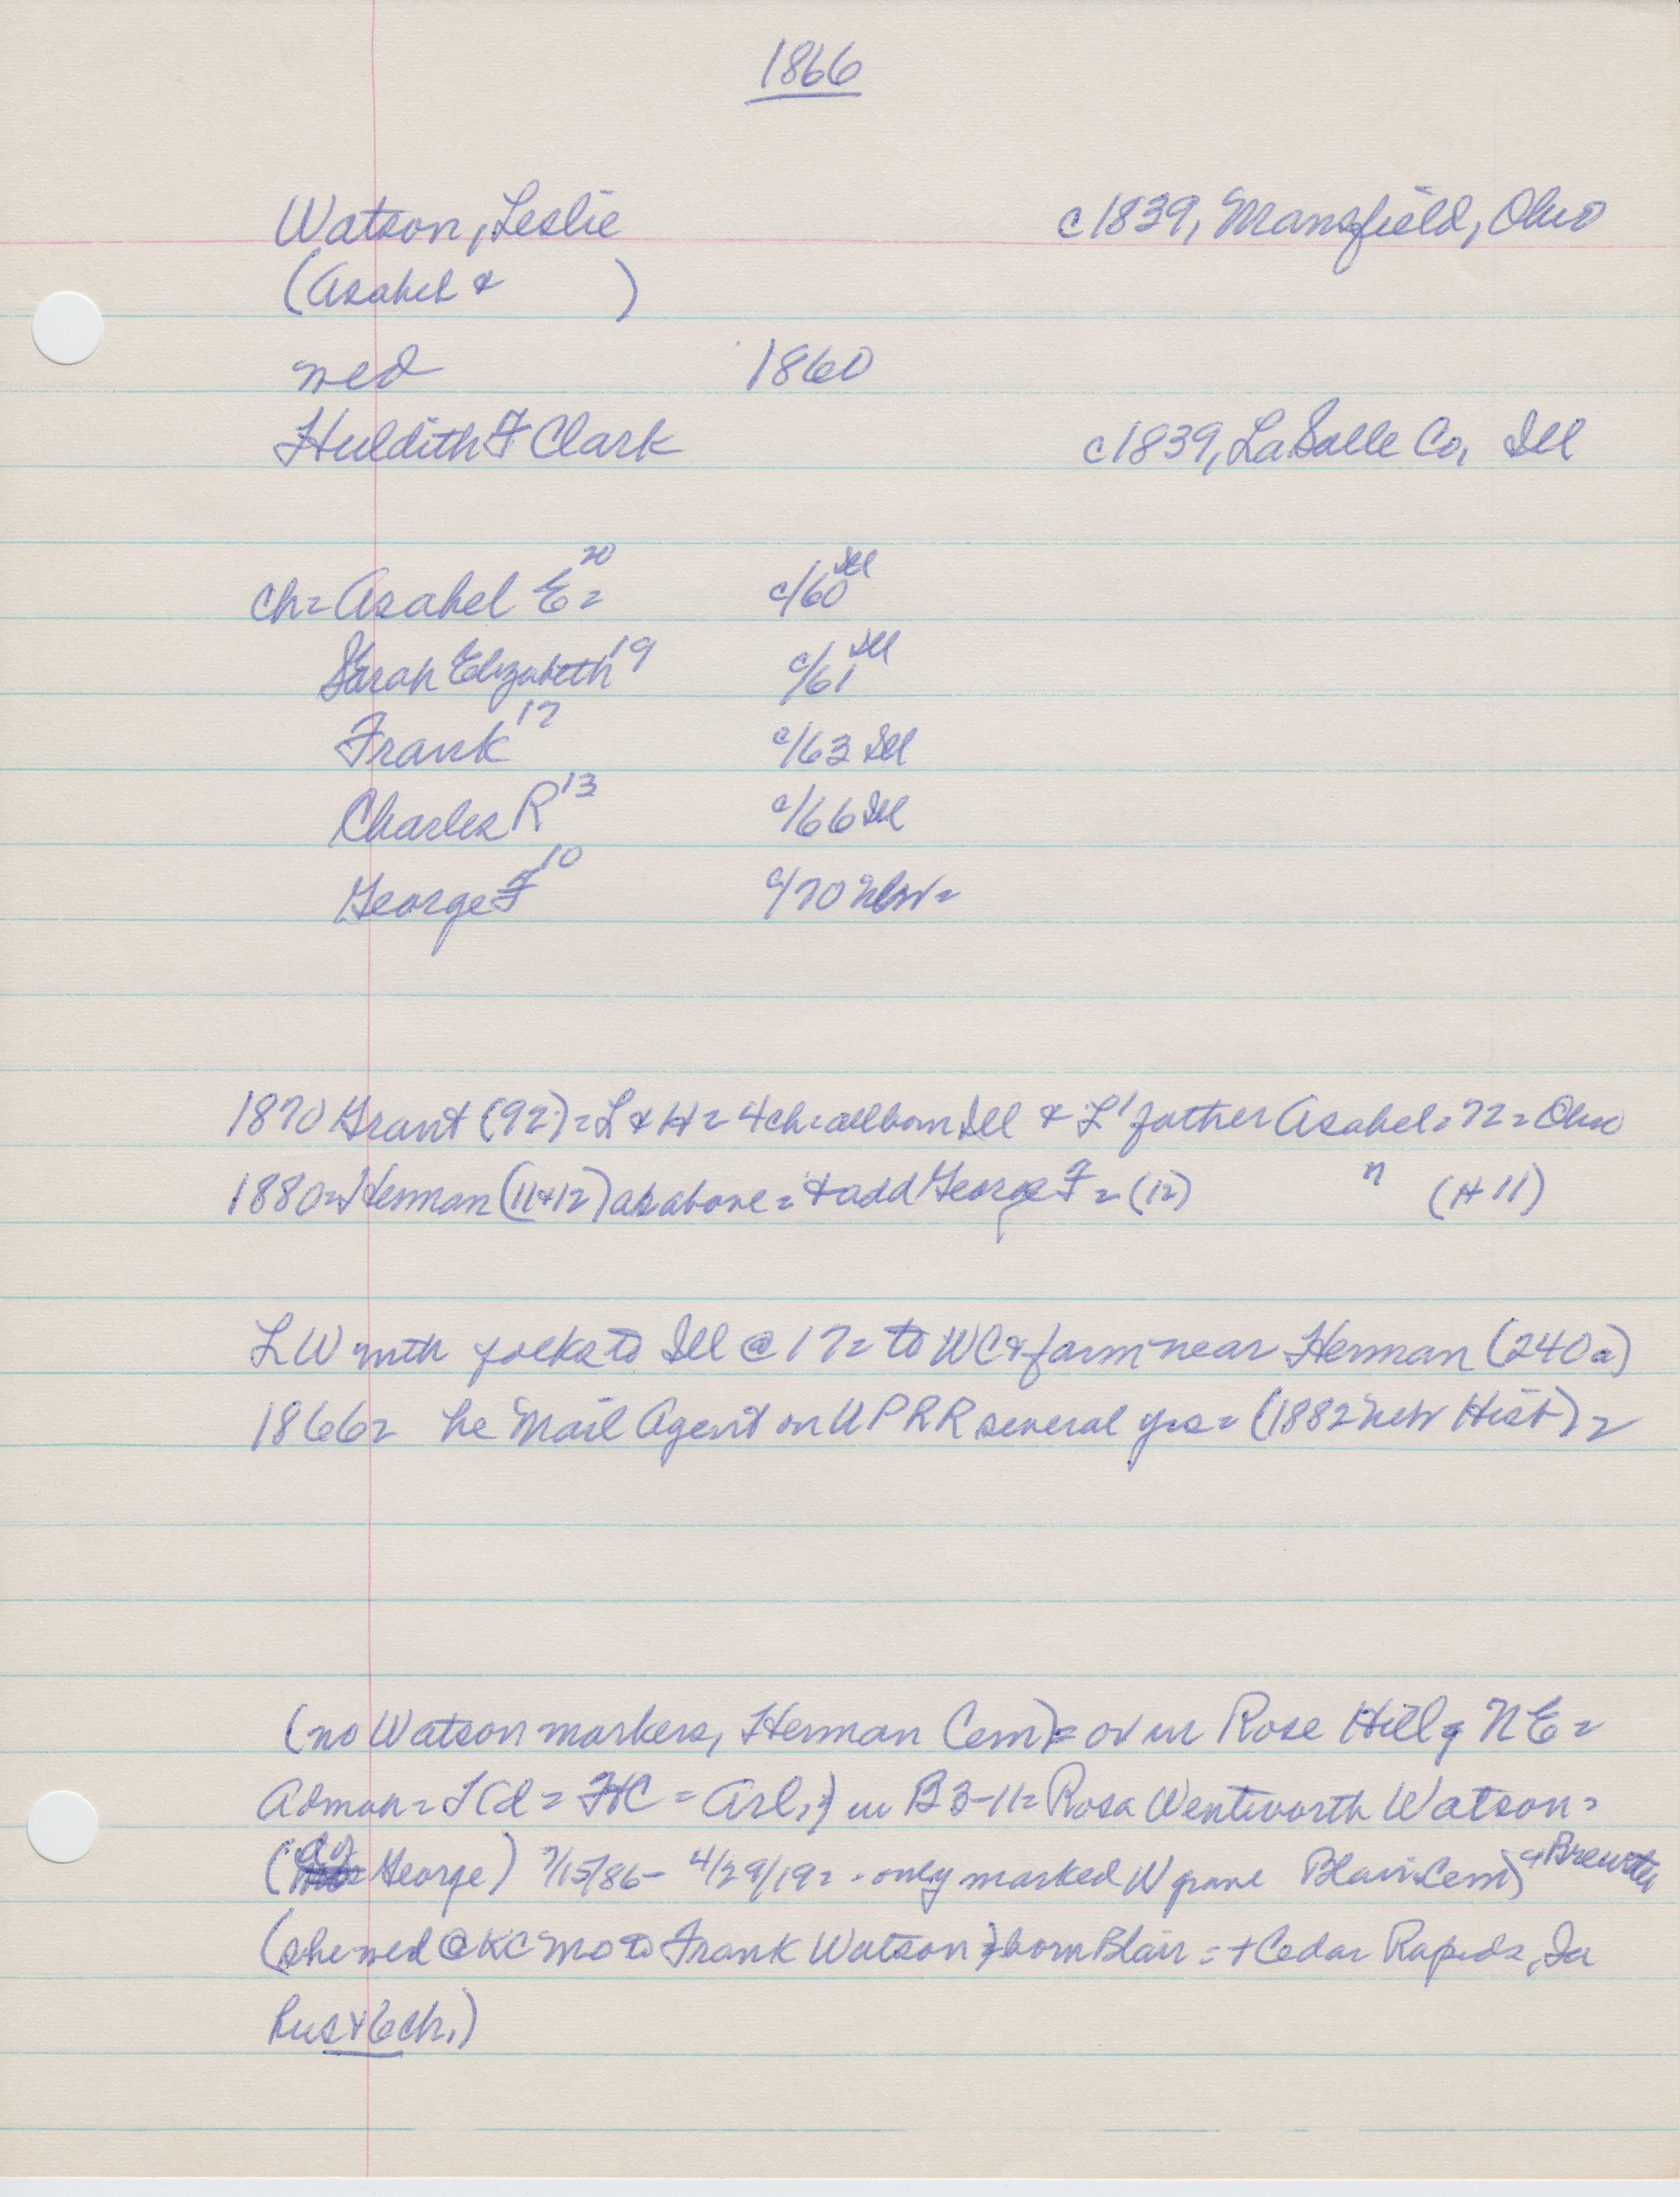 1866
Watson, Leslie c1839, Mansfield, Ohio
(Asahel & )
wed 1860
Huldith F Clark c1839, LaSalle Co, Ill
ch= Asahel E= 20 c/60 Ill
Sarah Elizabeth 19 c/61 Ill
Frank 17 c/63 Ill
Charles R 13 c/66 Ill
George F 10 c/70 Nebr=
1870 Grant (92)= L & H= 4ch= all born Ill & L' father Asahel= 72= Ohio
1880= Herman (11&12) as above= & add George F= (12) " (# 11)
LW with folks to Ill @ 17= to WC & farm near Herman (240a)
1866= he Mail Agent on UPRR several yrs= (1882 Nebr Hist)=
(no Watson markers, Herman Cem)= or in Rose Hill, NE=
Admah= = = Arl.) in B3-11= Rosa Wentworth Watson=
( George) 7/15/86- 4/29/19= - only marked W grave Blair Cem) & Brewster
(she wed @ KC Mo to Frank Watson) born Blair= + Cedar Rapids, Ia
hus & 6 ch.)